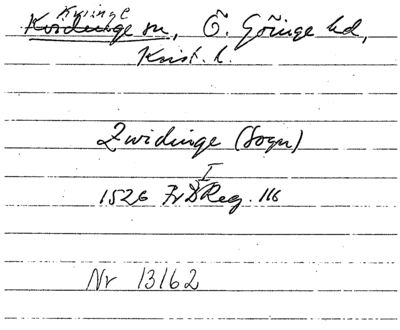 Kvinge
Kvidinge sn, Ö. Göinge hd,
Krist. l.
Zwidinge (Sogn)
I
1526 Fr Reg. 116
Nr 13162